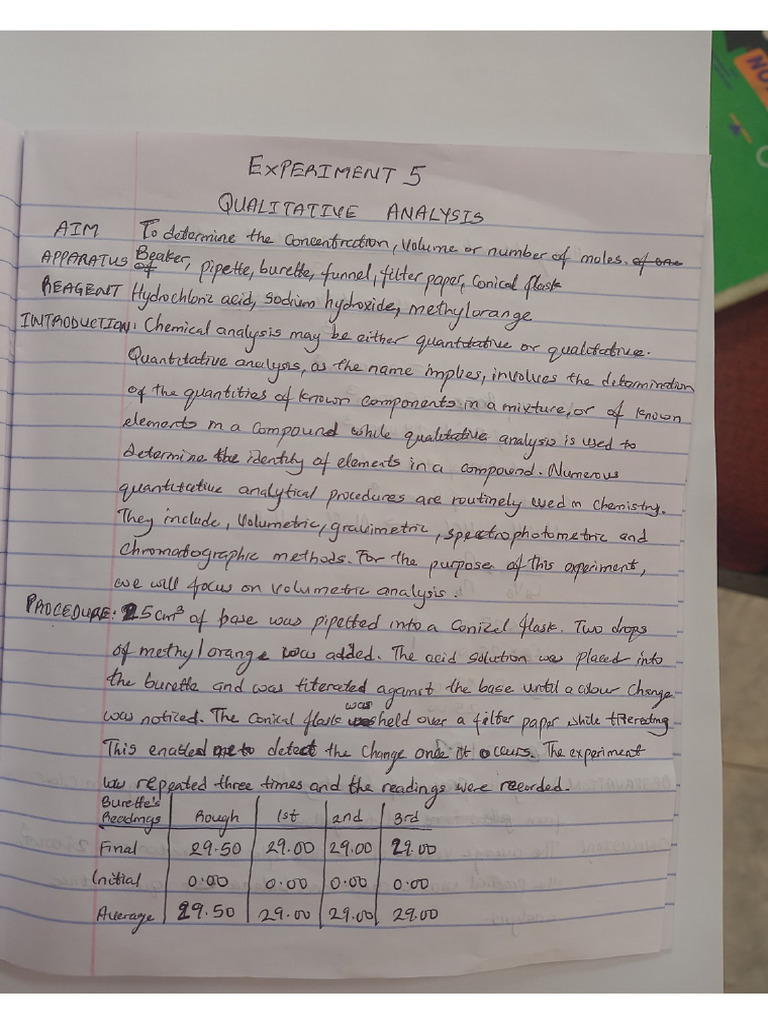 EXPERIMENT 5
QUALITATIVE ANALYSIS
AIM To determine the concentration, volume or number of moles. of one
APPARATUS Beaker, pipette, burette, funnel, filter paper, conical flask
of
REAGENT Hydrochloric acid, sodium hydroxide, methylorange
INTRODUCTION: Chemical analysis may be either quantitative or qualitative.
Quantitative analysis, as the name implies, involves the determination
of the quantities of known components in a mixture, or of known
elements in a compound while qualitative analysis is used to
determine the identity of elements in a compound. Numerous
quantitative analytical procedures are routinely used in chemistry.
They include, volumetric, gravimetric, spectrophotometric and
chromatographic methods. For the purpose of this experiment,
we will focus on volumetric analysis.
PROCEDURE: 25cm³ of base was pipetted into a conical flask. Two drops
of methyl orange was added. The acid solution was placed into
the burette and was titerated against the base until a colour change
was noticed. The conical flask was held over a filter paper while titerating
This enabled me to detect the change once it occurs. The experiment
was repeated three times and the readings were recorded.
Burette's Readings Rough 1st 2nd 3rd
Final 29.50 29.00 29.00 29.00
Initial 0.00 0.00 0.00 0.00
Average 29.50 29.00 29.00 29.00